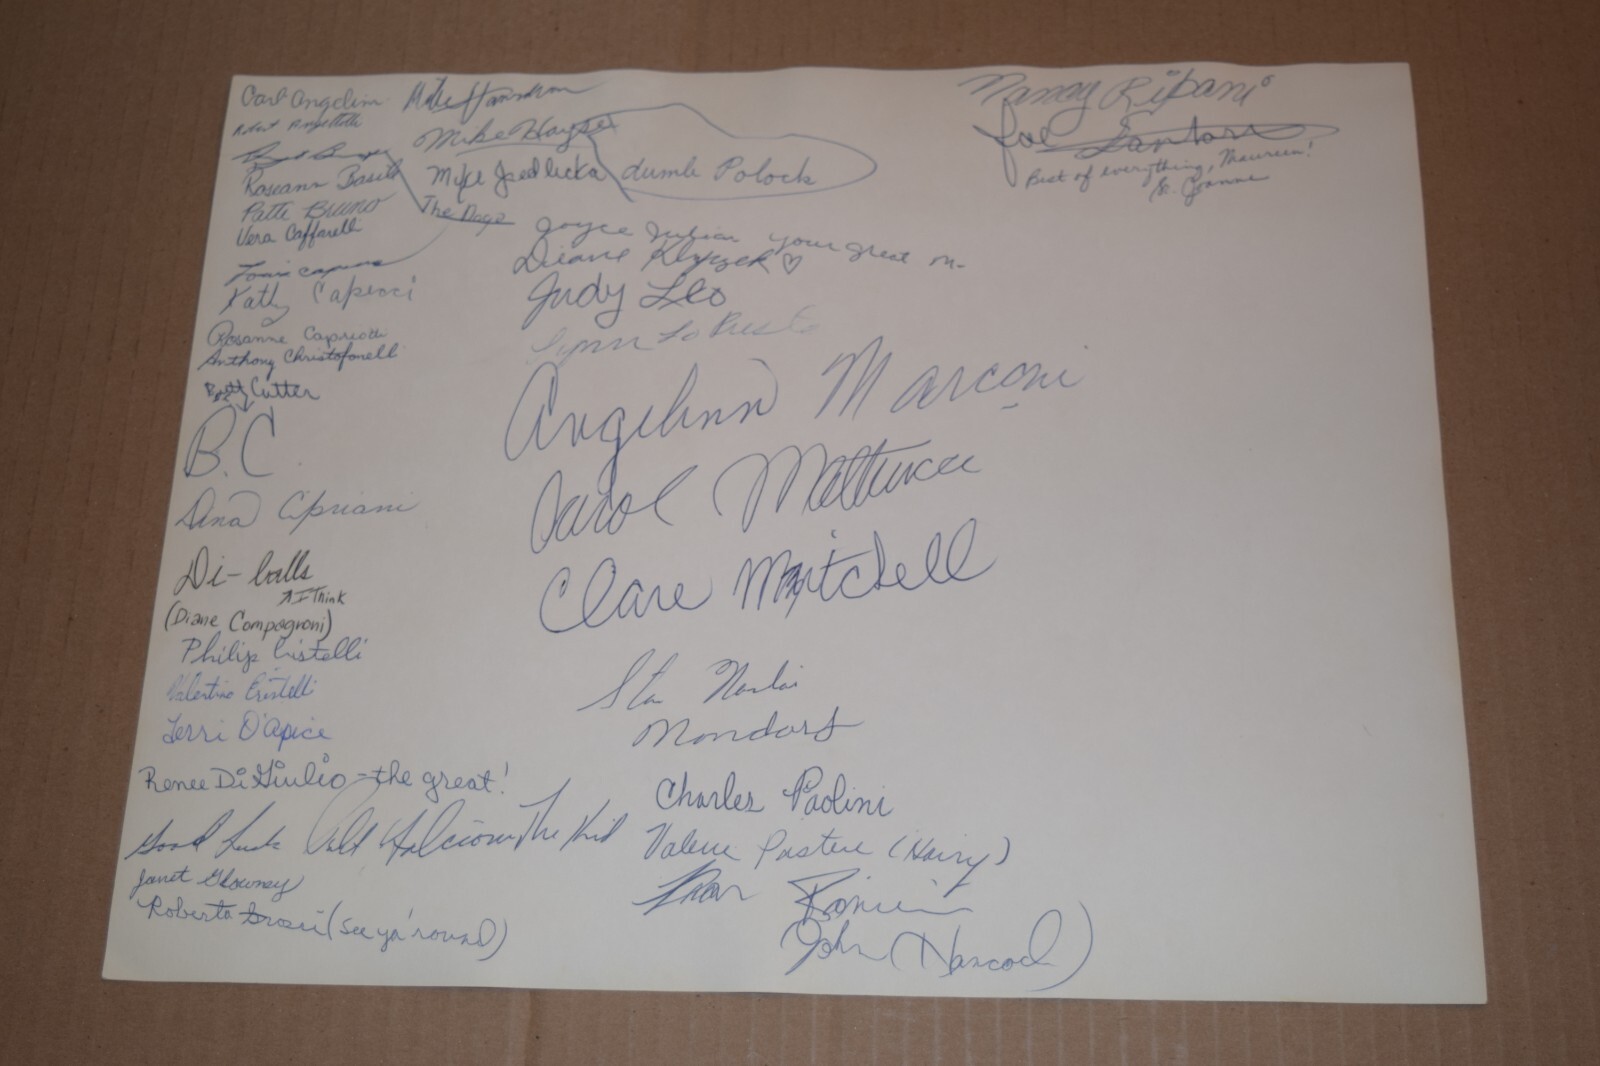 Carl Angelini
Roseann Basile
Patti Bruno
Vera Caffarelli
Kathy Caprioi
Rosanne Capriotti
Anthony Christofanelli
Betty Cutter
B.C
Dina Cipriani
Di-balls
I Think
(Diane Compagnoni)
Philip Cristelli
Valentino Cristelli
Terri D'Apice
Renee DiGiulio - the great!
Good Luck The Kid
Janet Glowney
Roberta Grossi (see ya' round)
Mike
Mike Hayse
Mike Jedlicka dumb Polock
The Dago
Joyce Julian your great
Diane
Judy Leo
Lynn Lo Presto
Angelina Marconi
Carol Mattucci
Clare Mitchell
Stan
Charles Paolini
Valerie Pastere (Hairy)
John Hancock)
Nancy Ripani
Joe Santoro
Best of everything, Maureen!
Sr. Joanne